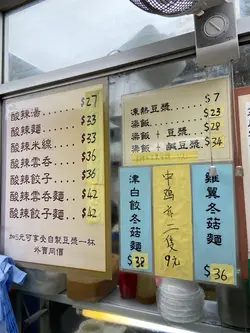 酸辣湯..... $27
酸辣麵..... $33
酸辣米線.... $33
酸辣雲吞.... $36
酸辣餃子.... $36
酸辣雲吞麵... $42
酸辣餃子麵... $42
加5元可享受自製豆漿一杯
外賣同價
凍熱豆漿..... $7
粢飯....... $23
粢飯 + 豆漿.. $28
粢飯 + 鹹豆漿. $34
津白餃冬菇麵
$38
中雞亦二隻
9元
雞翼冬菇麵
$36